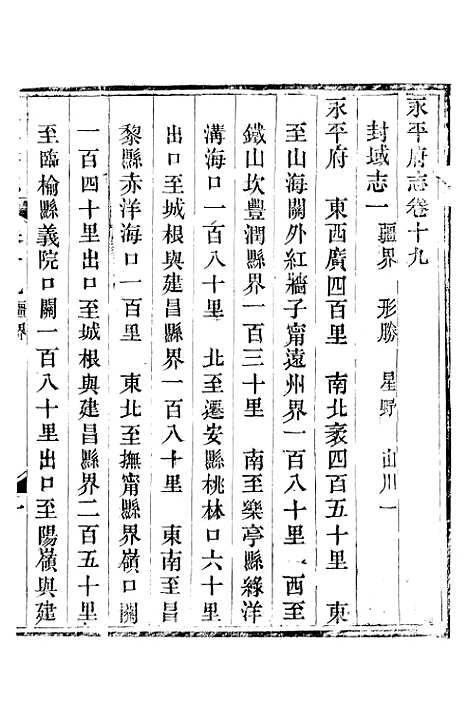 永平府志卷十九
封域志一 疆界 形勝 星野 山川一
永平府 東西廣四百里 南北袤四百五十里 東
至山海關外紅牆子甯遠州界一百八十里 西至
鐵山坎豐潤縣界一百三十里 南至樂亭縣綠洋
溝海口一百八十里 北至遷安縣桃林口六十里
出口至城根與建昌縣界一百八十里 東南至昌
黎縣赤洋海口一百里 東北至撫甯縣界嶺口關
一百四十里出口至城根與建昌縣界二百五十里
至臨榆縣義院口關一百八十里出口至陽嶺與建
疆界
一